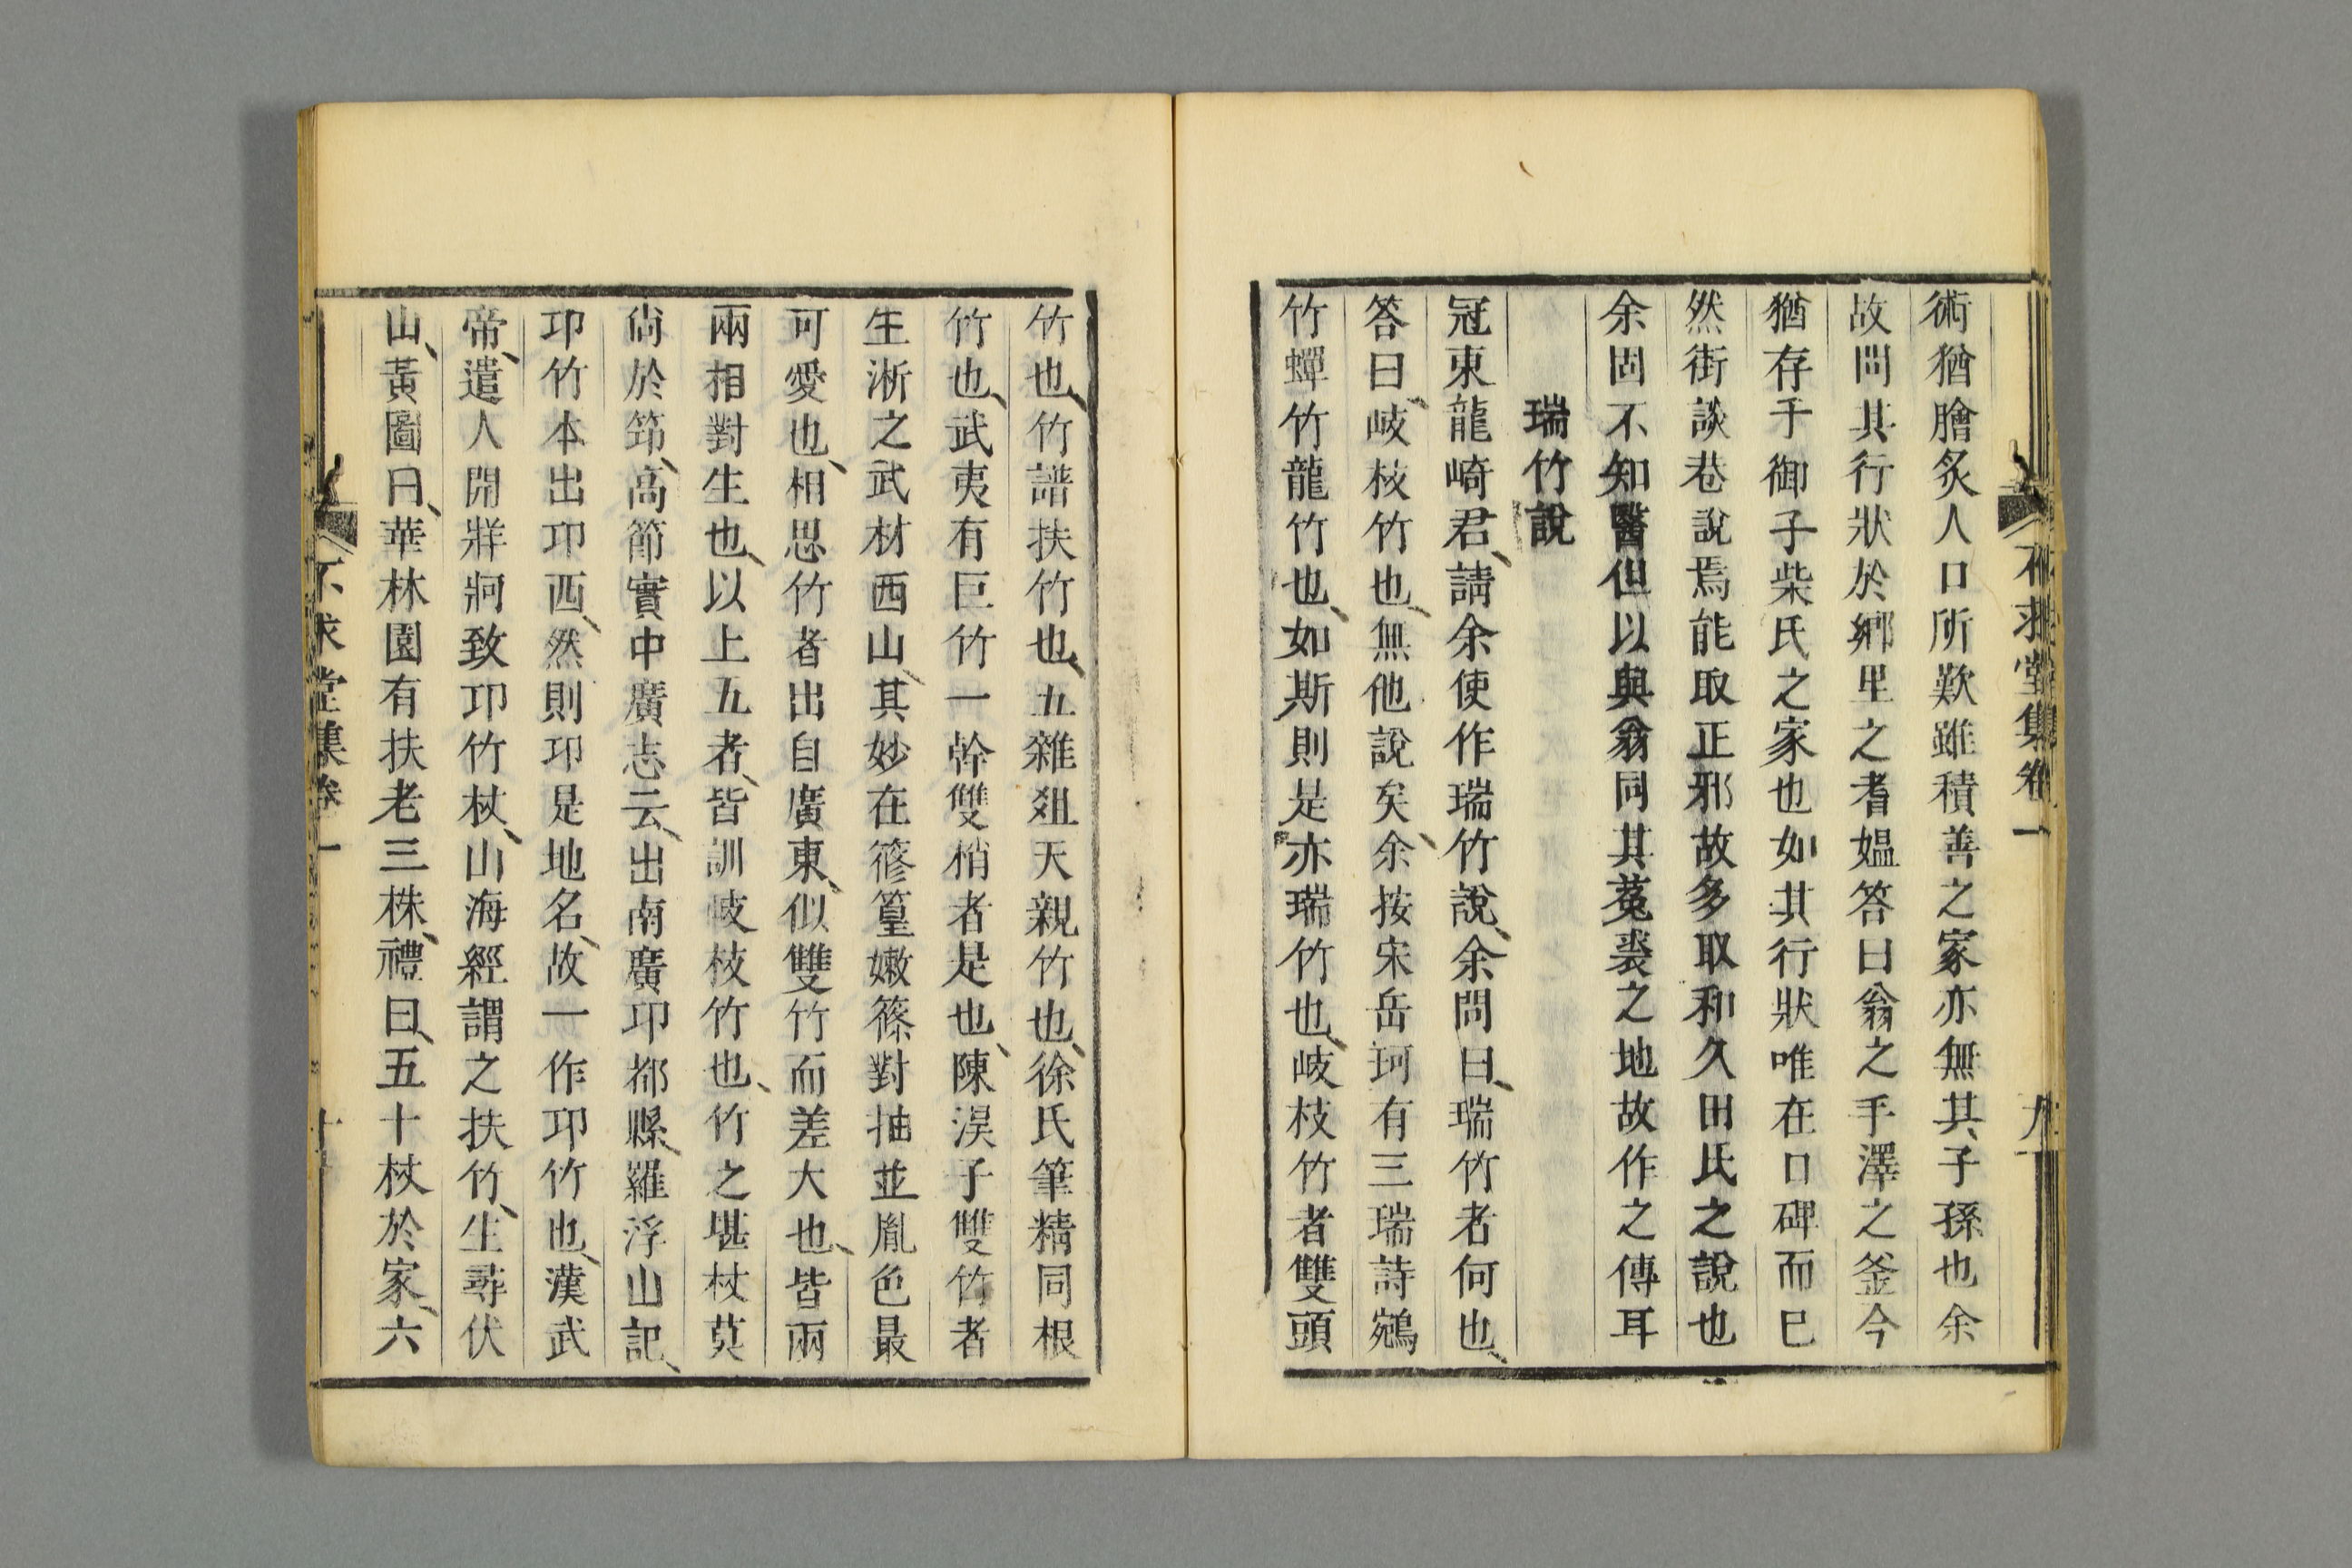 不求堂集卷一 九
術猶膾炙人口所歎雖積善之家亦無其子孫也余
故問其行狀於鄉里之耆媼答曰翁之手澤之釜今
猶存于御子柴氏之家也如其行狀唯在口碑而已
然街談巷說焉能取正邪故多取和久田氏之說也
余固不知醫但以與翁同其菟裘之地故作之傳耳
瑞竹說
冠東龍崎君、請余使作瑞竹說、余問曰、瑞竹者何也、
答曰、岐枝竹也、無他說矣、余按宋岳珂有三瑞詩鵷
竹蟬竹龍竹也、如斯則是亦瑞竹也、岐枝竹者雙頭
竹也、竹譜扶竹也、五雜俎天親竹也、徐氏筆精同根
竹也、武夷有巨竹一幹雙梢者是也、陳淏子雙竹者
生淅之武材西山、其妙在篠篁嫩篠對抽並胤色最
可愛也、相思竹者出自廣東、似雙竹而差大也、皆兩
兩相對生也、以上五者、皆訓岐枝竹也、竹之堪杖莫
尙於筇、高節實中廣志云、出南廣卭都縣、羅浮山記、
卭竹本出卭西、然則卭是地名、故一作卭竹也、漢武
帝、遣人開牂牁致卭竹杖、山海經謂之扶竹、生尋伏
山、黃圖曰、華林園有扶老三株、禮曰、五十杖於家、六
不求堂集卷一 十